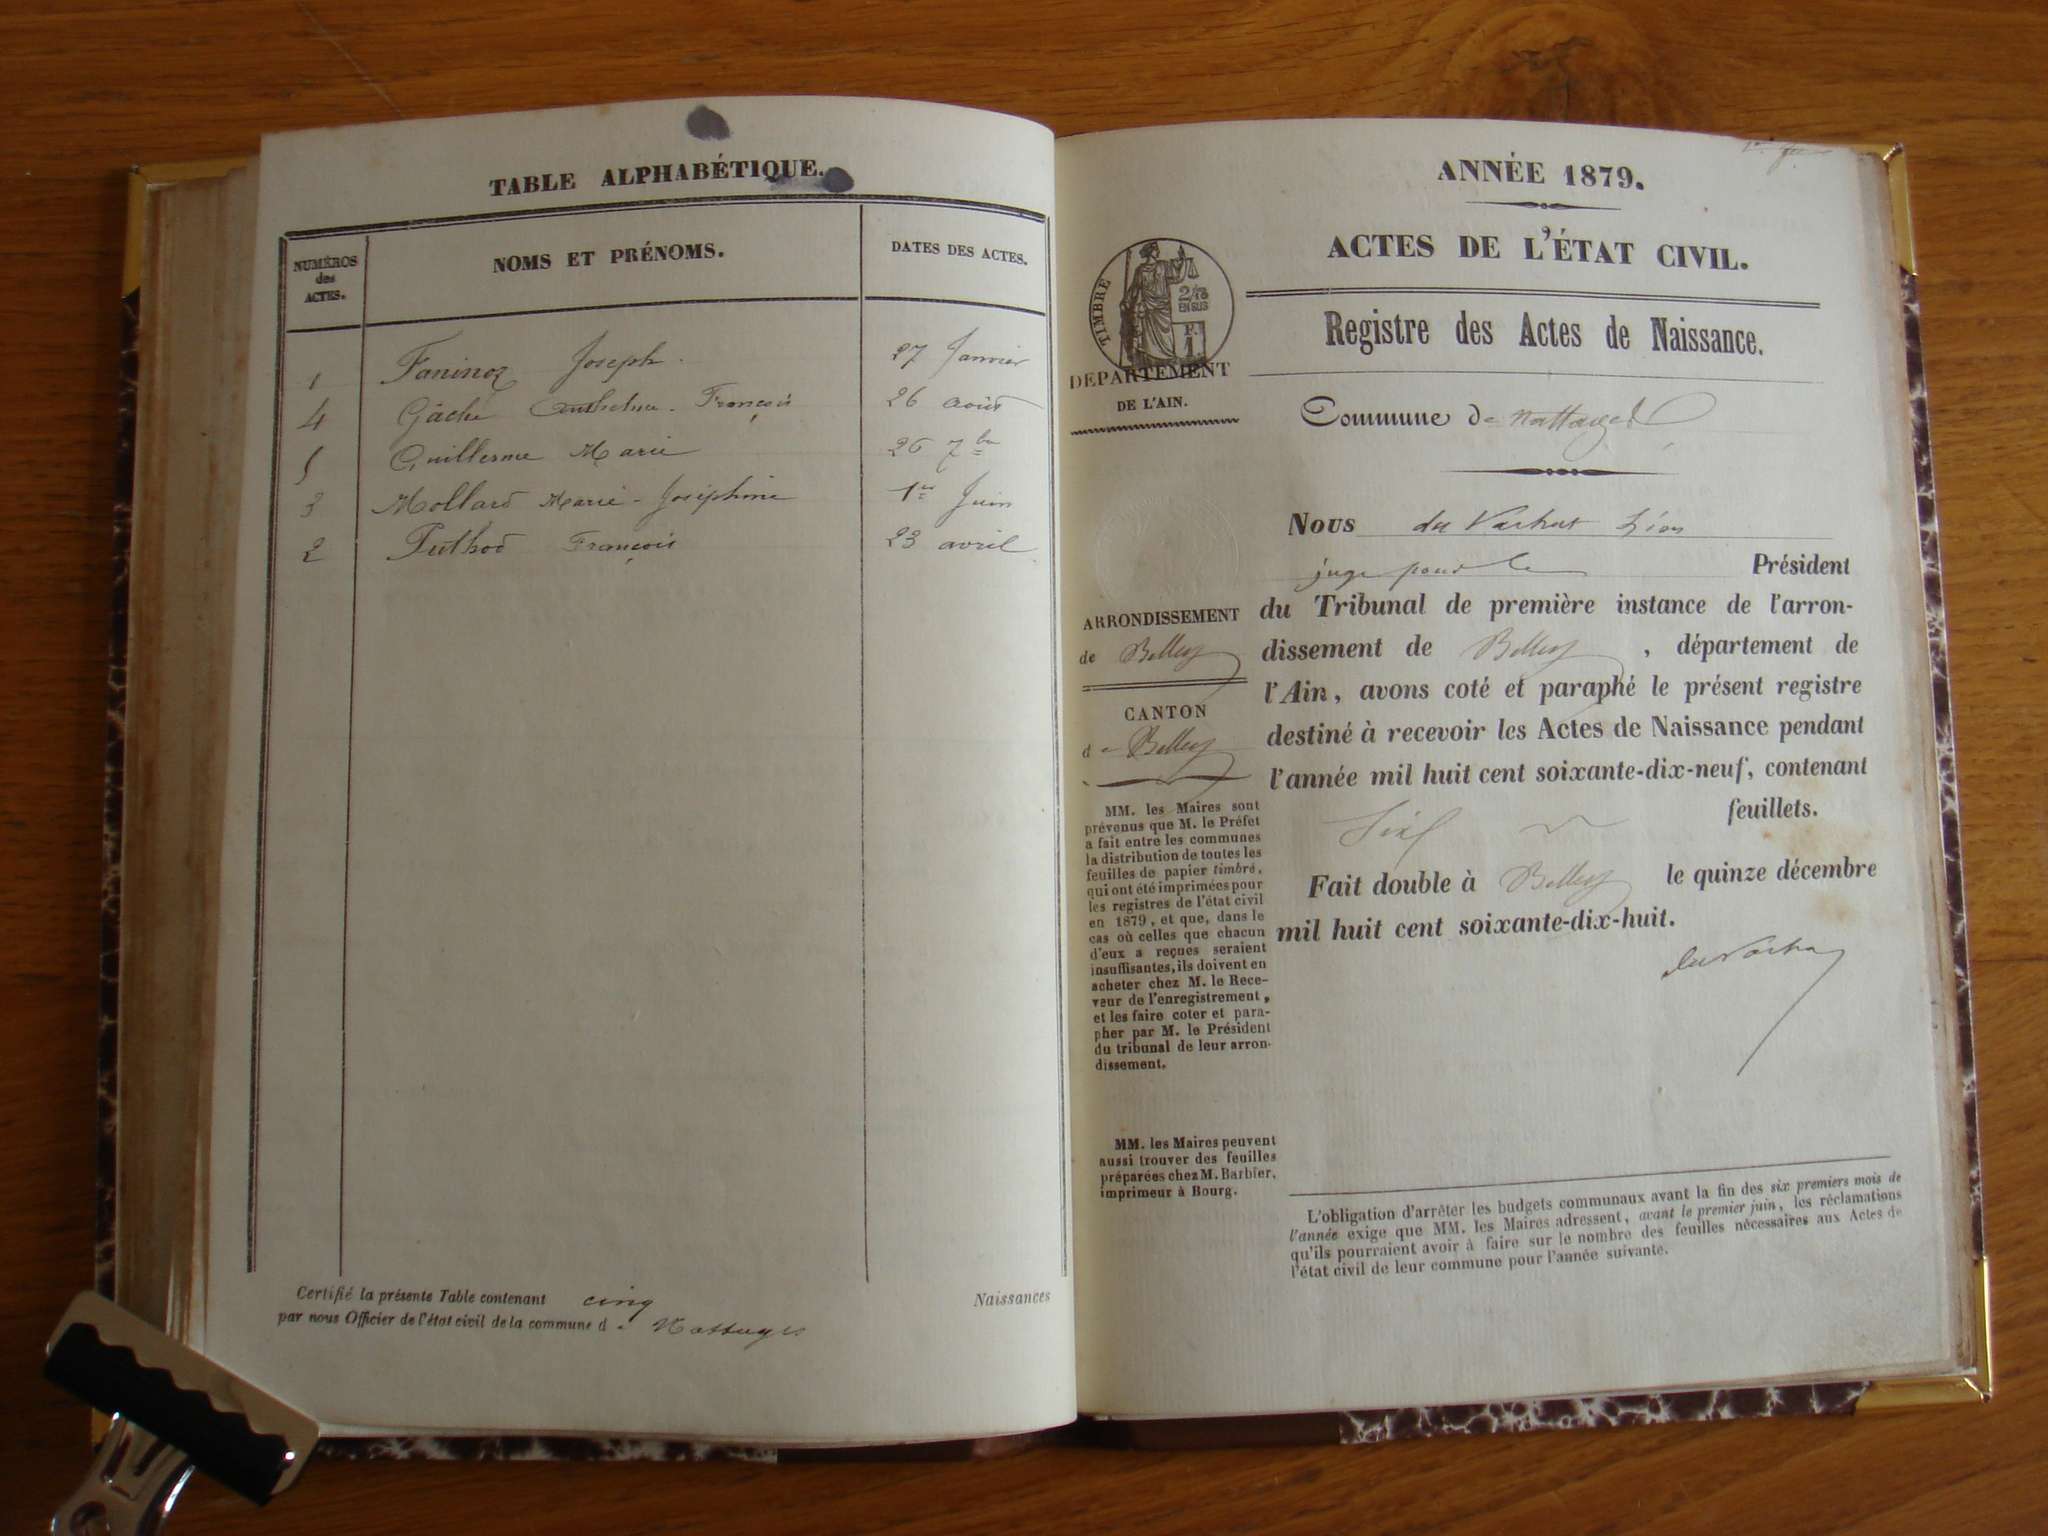 TABLE ALPHABÉTIQUE.
NUMÉROS des ACTES.
NOMS ET PRÉNOMS.
DATES DES ACTES.
1 Faninoz Joseph. 27 Janvier
4 Gâche Anthelme François 26 août
5 Guillerme Marie 26 7bre
3 Mollard Marie-Joséphine 1er Juin
2 Puthod François 23 avril
Certifié la présente Table contenant cinq Naissances
par nous Officier de l'état civil de la commune de Nattages
ANNÉE 1879.
ACTES DE L'ÉTAT CIVIL.
TIMBRE
2/10
EN SUS
F.
1
DEPARTEMENT
DE L'AIN.
Registre des Actes de Naissance.
Commune de Nattages
Nous du Vachat Léon
juge pour le Président
du Tribunal de première instance de l'arron-
dissement de Belley, département de
l'Ain, avons coté et paraphé le présent registre
destiné à recevoir les Actes de Naissance pendant
l'année mil huit cent soixante-dix-neuf, contenant
feuillets.
Fait double à Belley le quinze décembre
mil huit cent soixante-dix-huit.
du Vachat
ARRONDISSEMENT
de Belley
CANTON
de Belley
MM. les Maires sont
prévenus que M. le Préfet
a fait entre les communes
la distribution de toutes les
feuilles de papier timbré,
qui ont été imprimées pour
les registres de l'état civil
en 1879, et que, dans le
cas où celles que chacun
d'eux a reçues seraient
insuffisantes, ils doivent en
acheter chez M. le Rece-
veur de l'enregistrement,
et les faire coter et para-
pher par M. le Président
du tribunal de leur arron-
dissement.
MM. les Maires peuvent
aussi trouver des feuilles
préparées chez M. Barbier,
imprimeur à Bourg.
L'obligation d'arrêter les budgets communaux avant la fin des six premiers mois de
l'année exige que MM. les Maires adressent, avant le premier juin, les réclamations
qu'ils pourraient avoir à faire sur le nombre des feuilles nécessaires aux Actes de
l'état civil de leur commune pour l'année suivante.